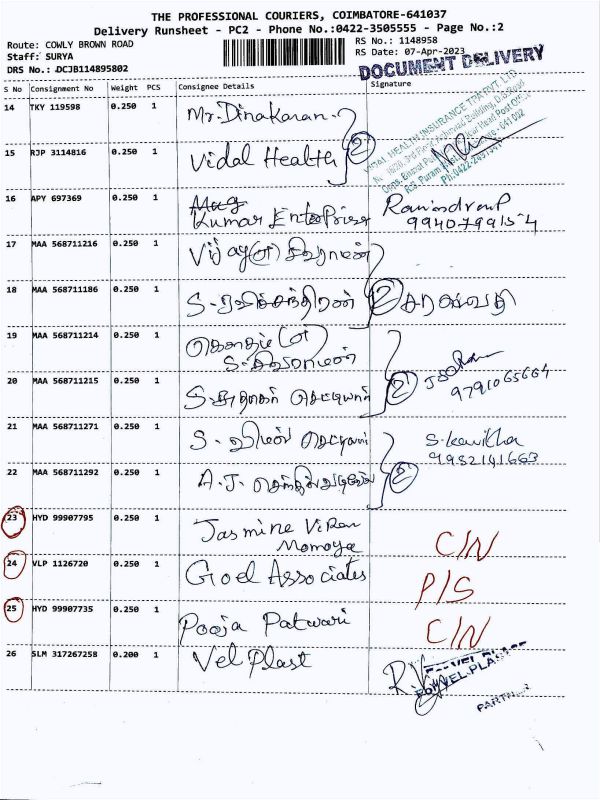 THE PROFESSIONAL COURIERS, COIMBATORE-641037
Delivery Runsheet - PC2 - Phone No.:0422-3505555 - Page No.:2
Route: COWLY BROWN ROAD
RS No.: 1148958
Staff: SURYA
RS Date: 07-Apr-2023
DRS No.: DCJB114895802
DOCUMENT DELIVERY
S No Consignment No Weight PCS Consignee Details Signature
14 TKY 119598 0.250 1 Mr. Dinakaran.
VIDAL HEALTH INSURANCE TPA PVT. LTD
15 RJP 3114816 0.250 1 Vidal Health 2
16 APY 697369 0.250 1
Kumar Enterprises
9940799154
17 MAA 568711216 0.250 1 Vijay
18 MAA 568711186 0.250 1 S. ரவிச்சந்திரன் 2 சரசுவதி
19 MAA 568711214 0.250 1
S. சிவராமன்
20 MAA 568711215 0.250 1 2
9791065664
21 MAA 568711271 0.250 1 S. Kavitha
9952141663
22 MAA 568711292 0.250 1 A.J. 2
23 HYD 99907795 0.250 1 Jasmine Viren
Momoya C/N
24 VLP 1126720 0.250 1 Goel Associates P/S
25 HYD 99907735 0.250 1 Pooja Patwari C/N
26 SLM 317267258 0.200 1 Vel Plast
FOR VEL PLAST